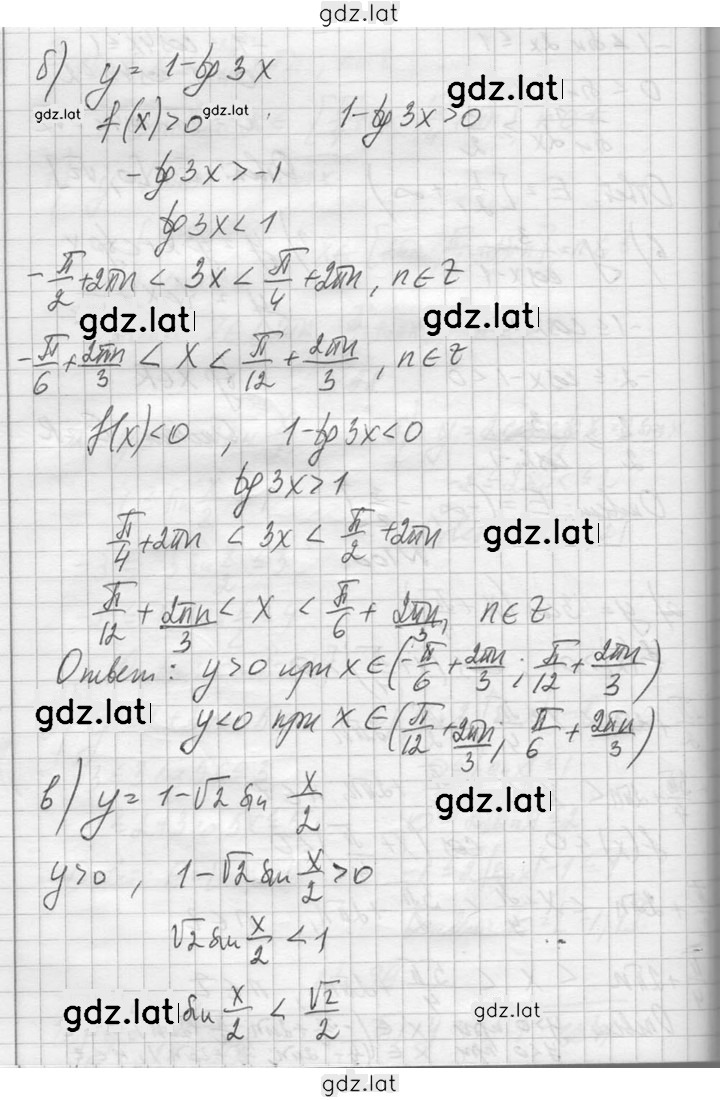 gdz.lat
б) y = 1-tg 3x
gdz.lat
gdz.lat f(x)>0 gdz.lat , 1-tg 3x>0
-tg 3x>-1
tg 3x<1
-π/2+2πn < 3x < π/4 +2πn, n∈Z
gdz.lat gdz.lat
-π/6+2πn/3 < x < π/12 + 2πn/3 , n∈Z
f(x)<0 , 1-tg 3x<0
tg 3x>1
π/4+2πn < 3x < π/2 +2πn gdz.lat
π/12 + 2πn/3 < x < π/6 + 2πn/3, n∈Z
Ответ: y>0 при x∈(-π/6 + 2πn/3 ; π/12 + 2πn/3)
gdz.lat y<0 при x∈(π/12 + 2πn/3; π/6 + 2πn/3)
в) y = 1-√2 sin x/2 gdz.lat
y>0 , 1-√2 sin x/2 >0
√2 sin x/2 < 1
gdz.lat sin x/2 < √2/2 gdz.lat
gdz.lat